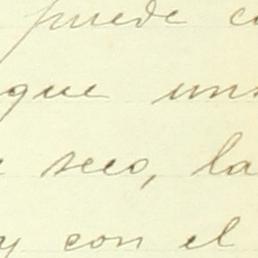 puede
que
seco, la
y con el